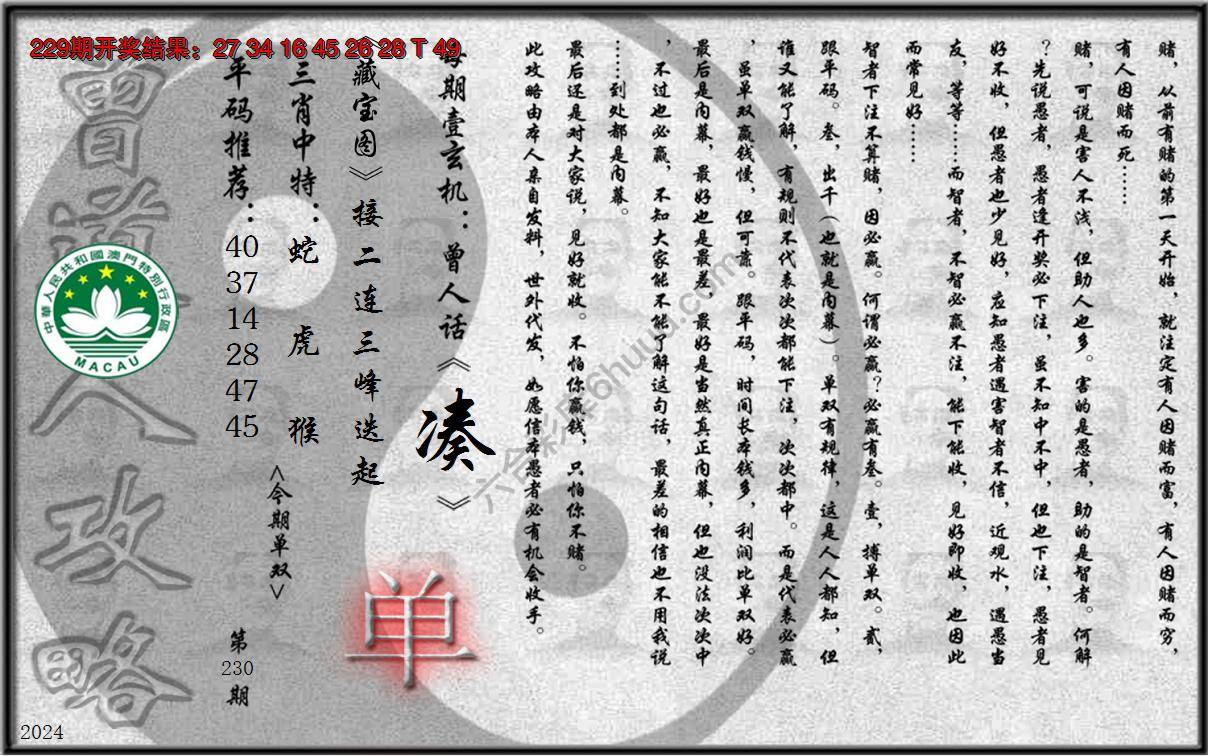 229期开奖结果：27 34 16 45 26 28 T 49
赌，从前有赌的第一天开始，就注定有人因赌而富，有人因赌而穷，
有人因赌而死……
赌，可说是害人不浅，但助人也多。害的是愚者，助的是智者。何解
？先说愚者，愚者逢开奖必下注，虽不知中不中，但也下注，愚者见
好不收，但愚者也少见好，应知愚者遇害智者不信，近观水，遇愚当
友，等等……而智者，不智必赢不注，能下能收，见好即收，也因此
而常见好……
智者下注不算赌，因必赢。何谓必赢？必赢有叁。壹，搏单双。贰，
跟平码。叁，出千（也就是内幕）。单双有规律，这是人人都知，但
谁又能了解，有规则不代表次次都能下注，次次都中。而是代表必赢
，虽单双赢钱慢，但可靠。跟平码，时间长本钱多，利润比单双好。
最后是内幕，最好也是最差，最好是当然真正内幕，但也没法次次中
，不过也必赢，不知大家能不能了解这句话，最差的相信也不用我说
……到处都是内幕。
最后还是对大家说，见好就收。不怕你赢钱，只怕你不赌。
此攻略由本人亲自发料，世外代发，如愿信本愚者必有机会收手。
每期壹玄机：曾人话《凑》
《藏宝图》接二连三峰迭起
三肖中特：蛇 虎 猴
平码推荐：40 37 14 28 47 45
<今期单双>
单
第230期
曾道人攻略
中華人民共和國澳門特別行政區
MACAU
六合彩库6huuu.com
2024